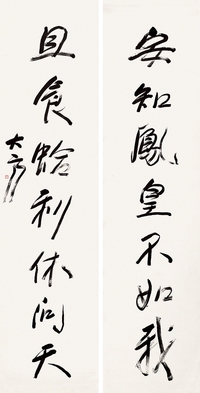 安知鳳皇不如我
且食蛤利休問天
大康